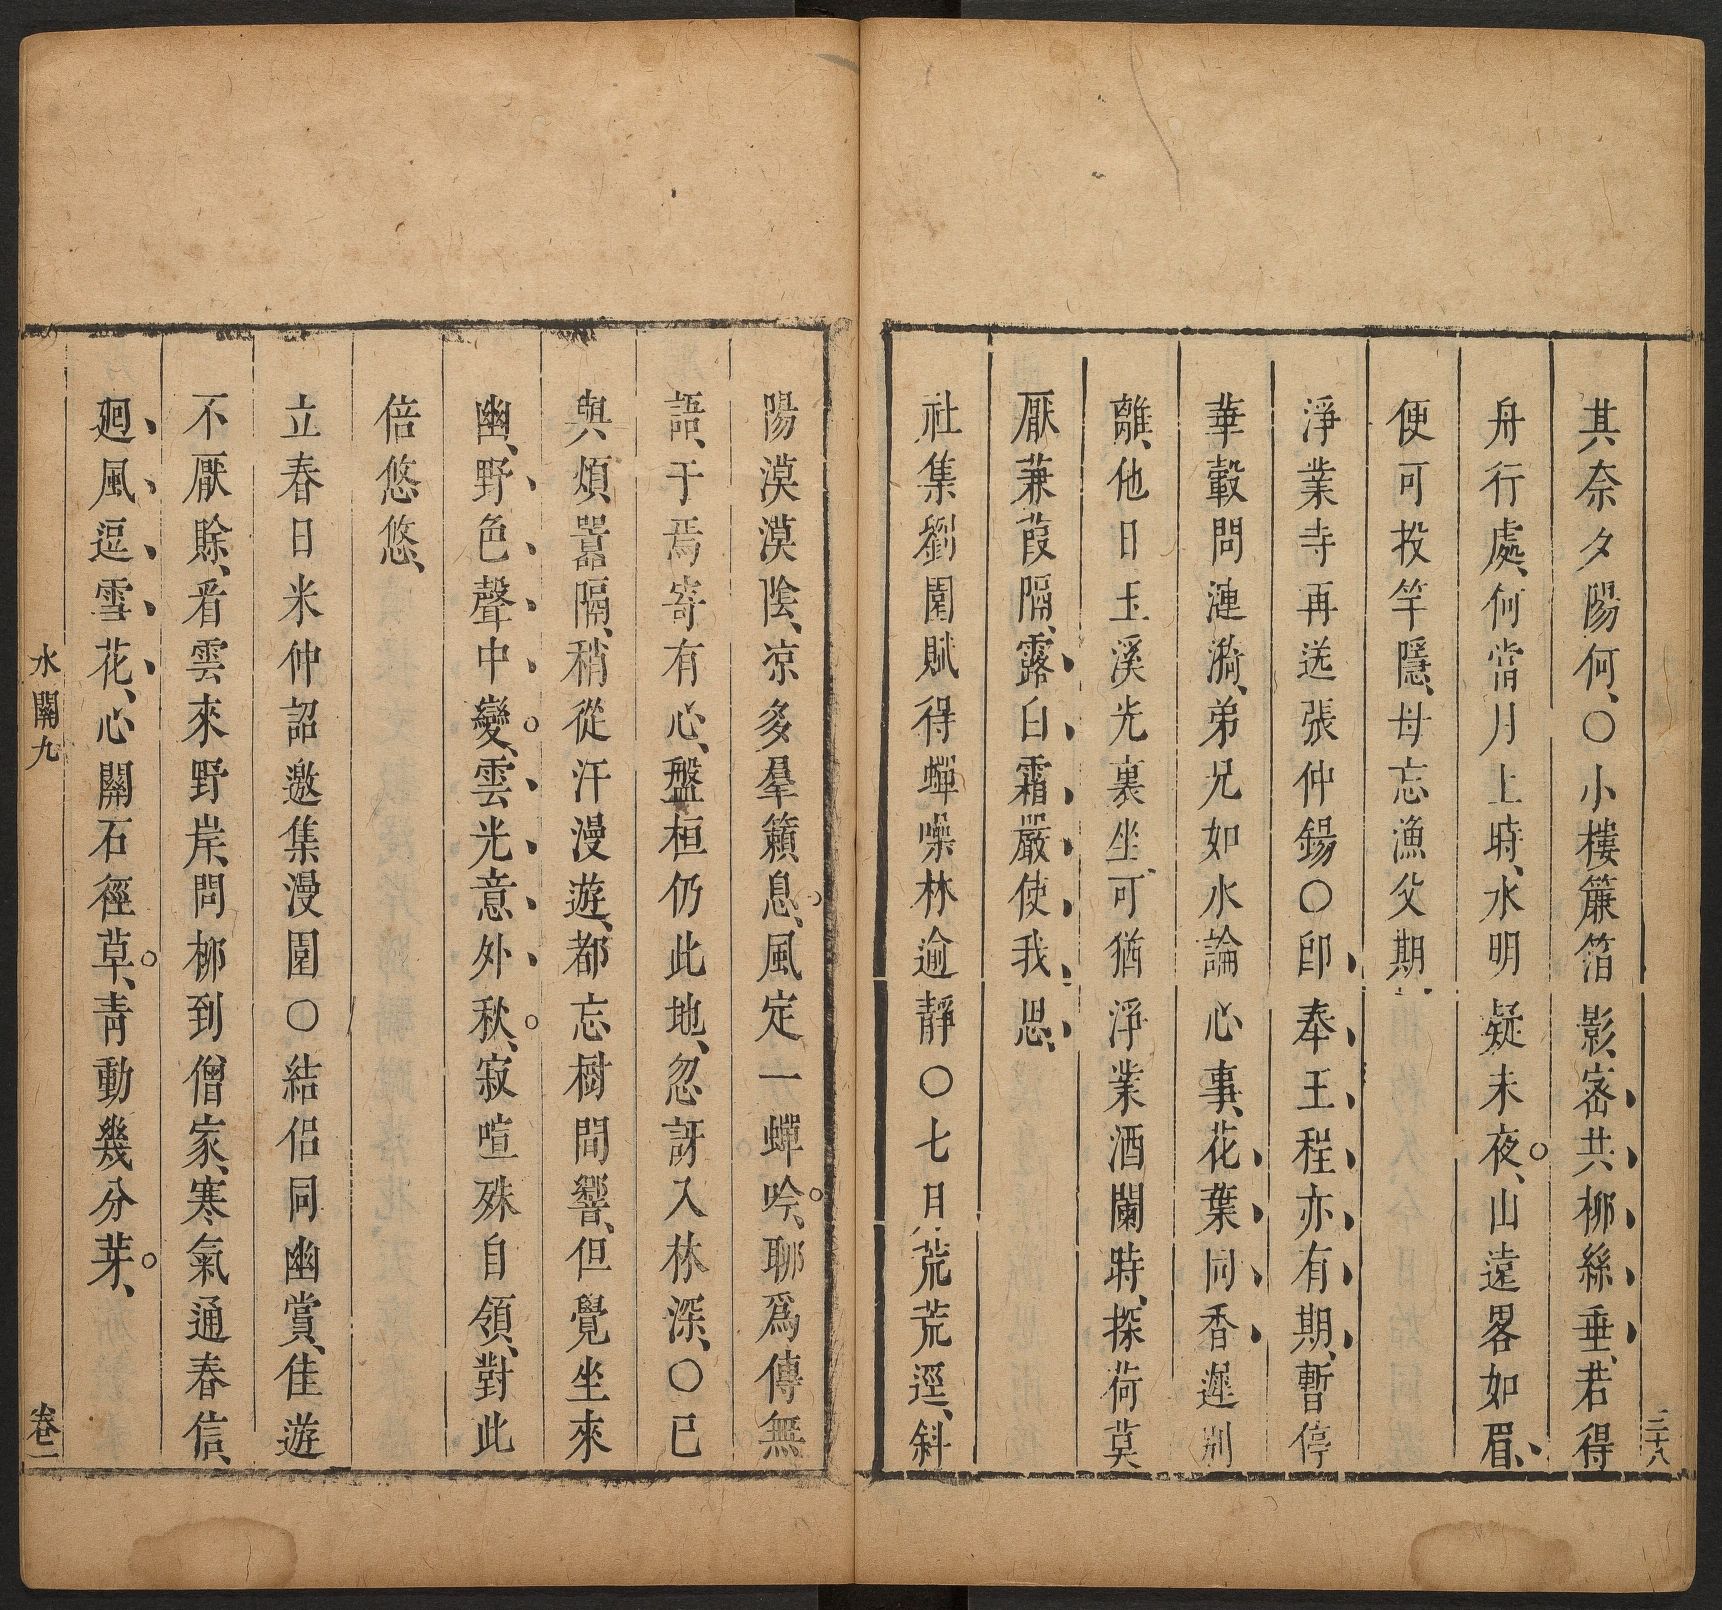 三十八
其奈夕陽何、○小樓簾箔影、密共柳絲垂、君得
舟行處、何當月上時、水明疑未夜、山遠畧如眉、
便可投竿隱、毋忘漁父期
淨業寺再送張仲錫○卽奉王程亦有期、暫停
華轂問漣漪、弟兄如水論心事、花葉同香遲別
離、他日玉溪光裏坐、可猶淨業酒闌時、採荷莫
厭蒹葭隔、露白霜嚴使我思、
社集劉園賦得蟬噪林逾靜○七月荒荒逕、斜
陽漠漠陰、凉多羣籟息、風定一蟬吟、聊爲傳無
語、于焉寄有心、盤桓仍此地、忽訝入林深、○已
與煩囂隔、稍從汗漫遊、都忘樹間響、但覺坐來
幽、野色聲中變、雲光意外秋、寂喧殊自領、對此
倍悠悠、
立春日米仲詔邀集漫園○結侶同幽賞、佳遊
不厭賒、看雲來野岸、問柳到僧家、寒氣通春信、
廻風逗雪花、心關石徑草、靑動幾分芽、
水關九
卷二